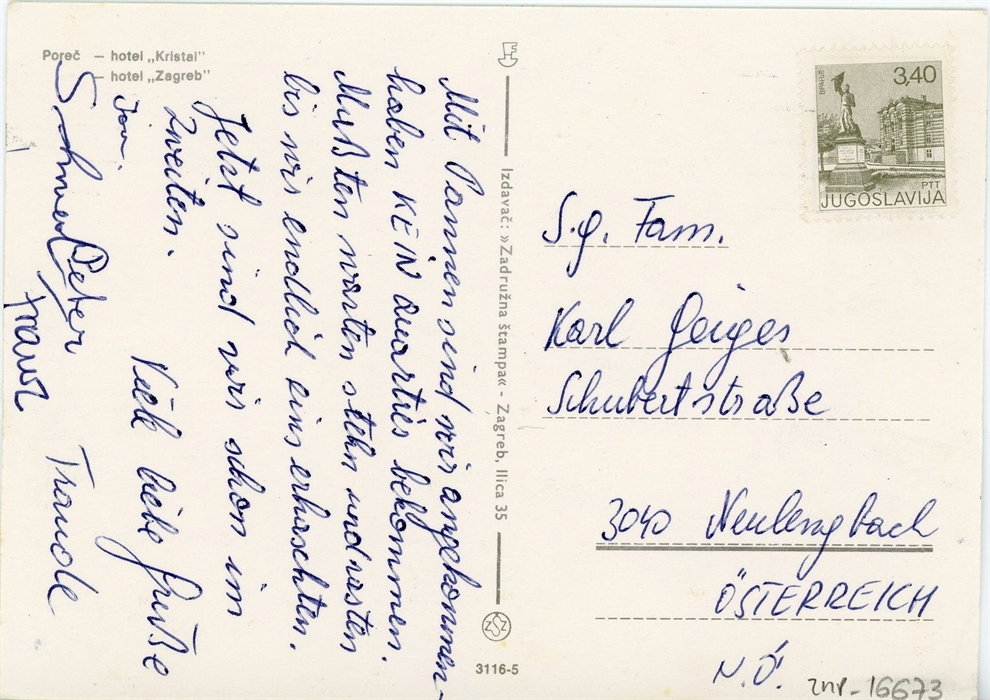 Poreč – hotel „Kristal"
– hotel „Zagreb"
Mit Pannen sind wir angekommen-
haben KEIN Quartier bekommen.
Mußten warten stehn und rasten
bis wir endlich eins erhaschten.
Jetzt sind wir schon im
zweiten.
Viele liebe Grüße
Traude
Peter
Izdavač: »Zadružna štampa« - Zagreb, Ilica 35
3116-5
BRANJE
3,40
PTT
JUGOSLAVIJA
S.g. Fam.
Karl Geiges
Schubertstraße
3040 Neulengbach
ÖSTERREICH
N.Ö.
znp-16673